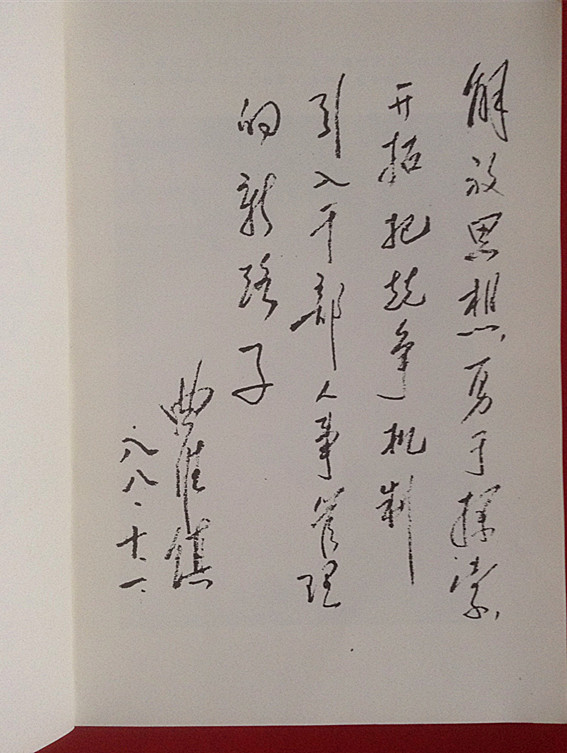 解放思想,勇于探索,
开拓把竞争机制
引入干部人事管理
的新路子
曲维镇
八八、十一、